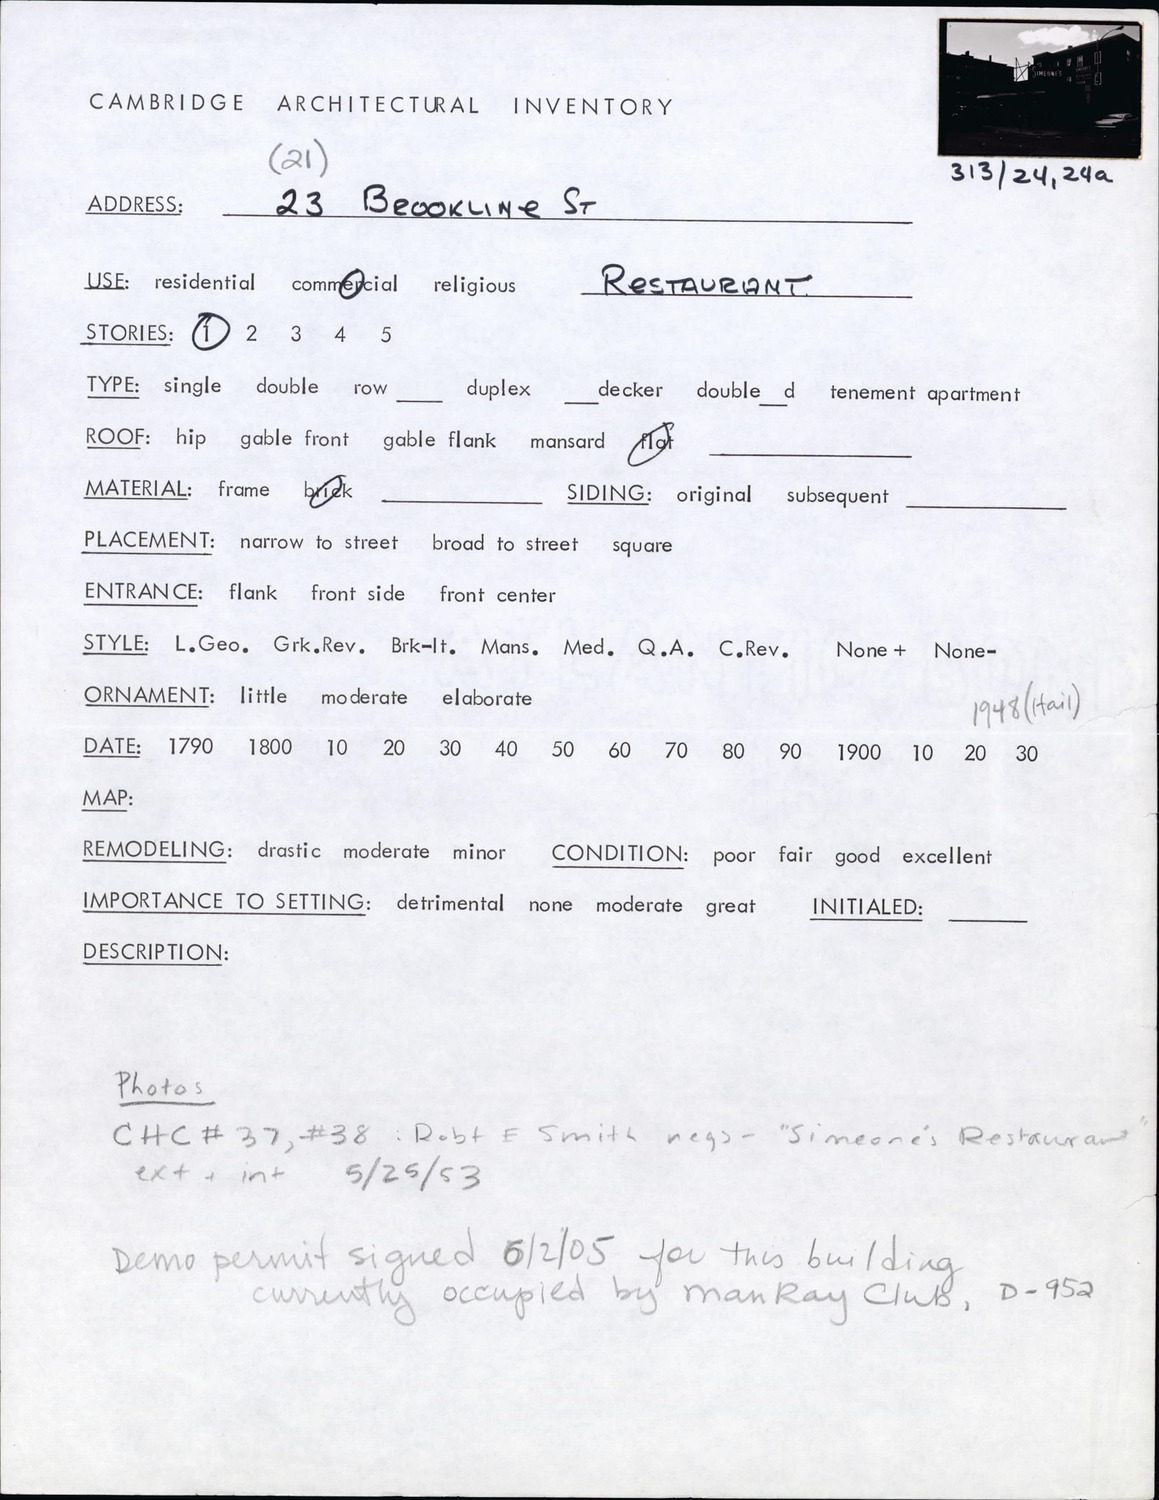 SIMEONE'S
CAMBRIDGE ARCHITECTURAL INVENTORY
313/24,24a
(21)
ADDRESS: 23 BROOKLINE ST
USE: residential commercial religious RESTAURANT
STORIES: 1 2 3 4 5
TYPE: single double row ____ duplex ___decker double__d tenement apartment
ROOF: hip gable front gable flank mansard flat
MATERIAL: frame brick SIDING: original subsequent
PLACEMENT: narrow to street broad to street square
ENTRANCE: flank front side front center
STYLE: L.Geo. Grk.Rev. Brk-It. Mans. Med. Q.A. C.Rev. None + None-
ORNAMENT: little moderate elaborate
1948 (Hail)
DATE: 1790 1800 10 20 30 40 50 60 70 80 90 1900 10 20 30
MAP:
REMODELING: drastic moderate minor CONDITION: poor fair good excellent
IMPORTANCE TO SETTING: detrimental none moderate great INITIALED:
DESCRIPTION:
Photos
CHC # 37, #38 : Robt E Smith negs - "Simeone's Restaurant"
ext + int 5/25/53
Demo permit signed 6/2/05 for this building
currently occupied by ManRay Club, D-952